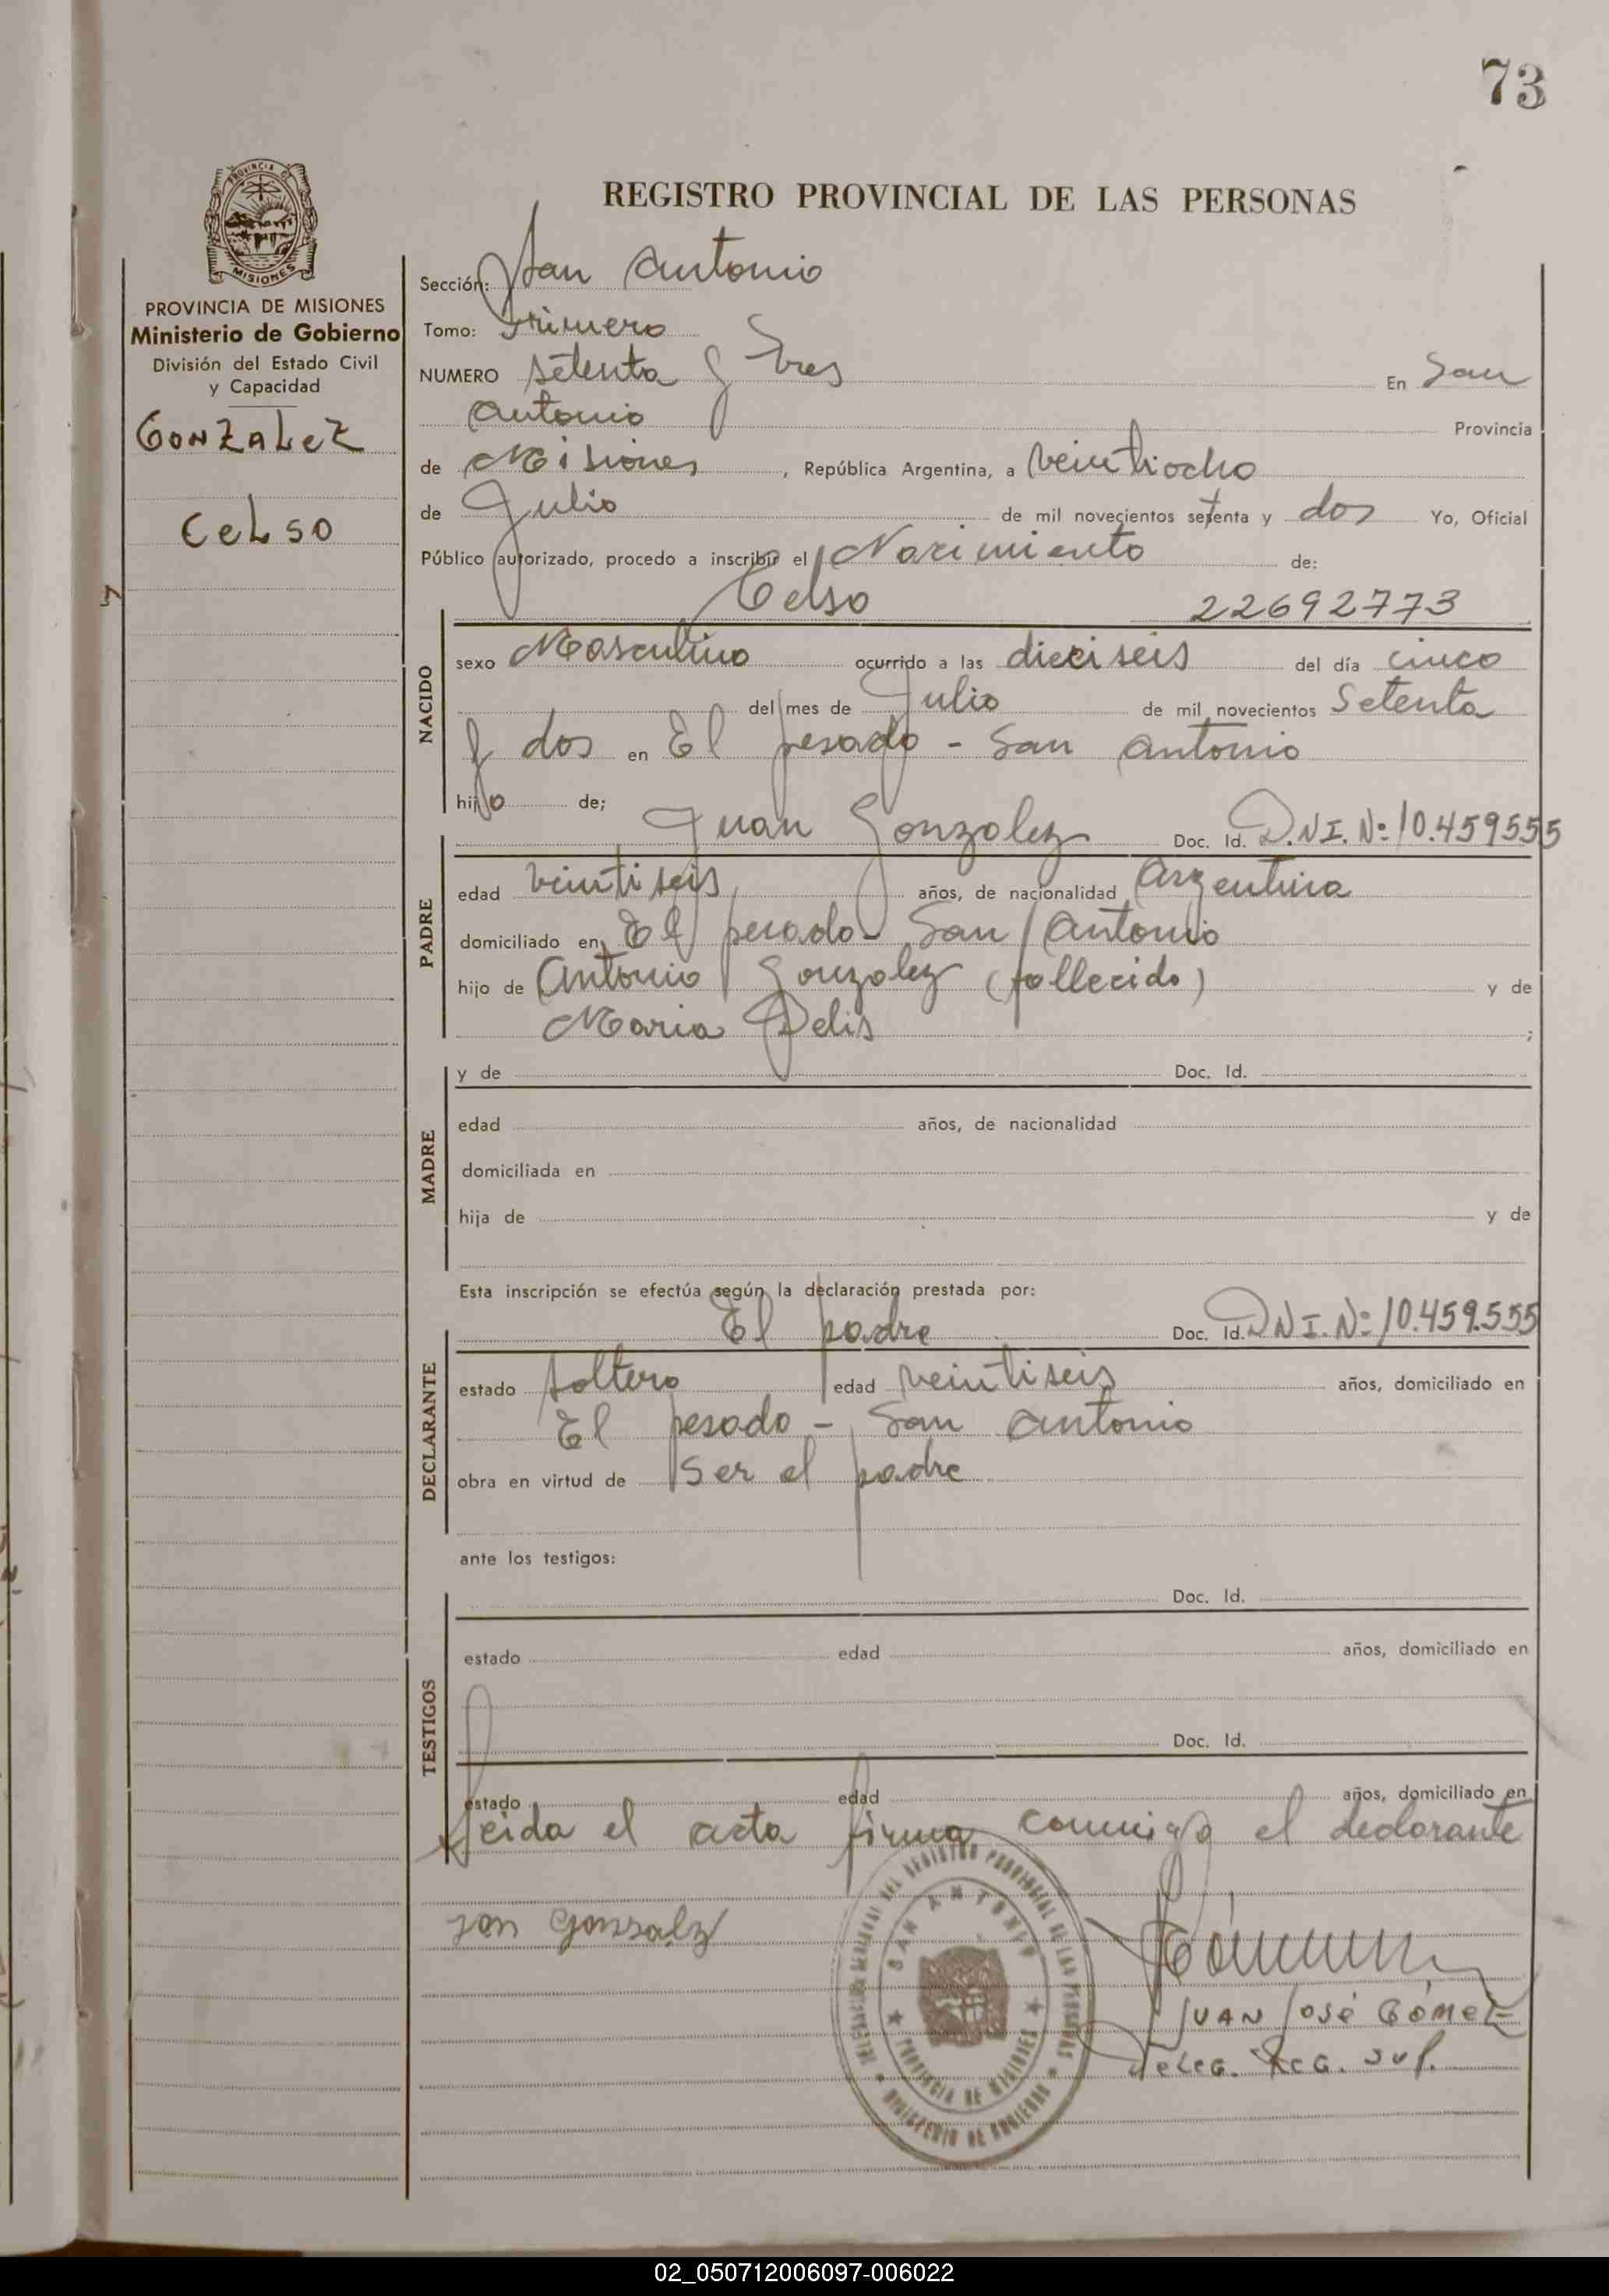 73
REGISTRO PROVINCIAL DE LAS PERSONAS
PROVINCIA DE MISIONES
Ministerio de Gobierno
División del Estado Civil
y Capacidad
GONZALEZ
CELSO
Sección: San Antonio
Tomo: Primero
NUMERO setenta y tres En San
Antonio Provincia
de Misiones, República Argentina, a veintiocho
de Julio de mil novecientos setenta y dos Yo, Oficial
Público autorizado, procedo a inscribir el Nacimiento de:
Celso 22692773
NACIDO
sexo Masculino ocurrido a las dieciseis del día cinco
del mes de Julio de mil novecientos Setenta
y dos en El pesado - San Antonio
hijo de;
Juan Gonzalez Doc. Id. D.N.I. Nº 10.459555
PADRE
edad veintiseis años, de nacionalidad Argentina
domiciliado en El pesado San Antonio
hijo de Antonio Gonzalez (fallecido) y de
Maria Delis ;
MADRE
y de Doc. Id.
edad años, de nacionalidad
domiciliada en
hija de y de
Esta inscripción se efectúa según la declaración prestada por:
El padre Doc. Id. D N I. Nº 10.459.555
DECLARANTE
estado soltero edad veintiseis años, domiciliado en
El pesado - San Antonio
obra en virtud de ser el padre
ante los testigos:
Doc. Id.
TESTIGOS
estado edad años, domiciliado en
Doc. Id.
estado edad años, domiciliado en
Leida el acta firma conmigo el declarante
SAN ANTONIO
PROVINCIA DE MISIONES
MINISTERIO DE GOBIERNO
JUAN JOSÉ GÓMEZ
DELEG. REG. SUP.
02_050712006097-006022